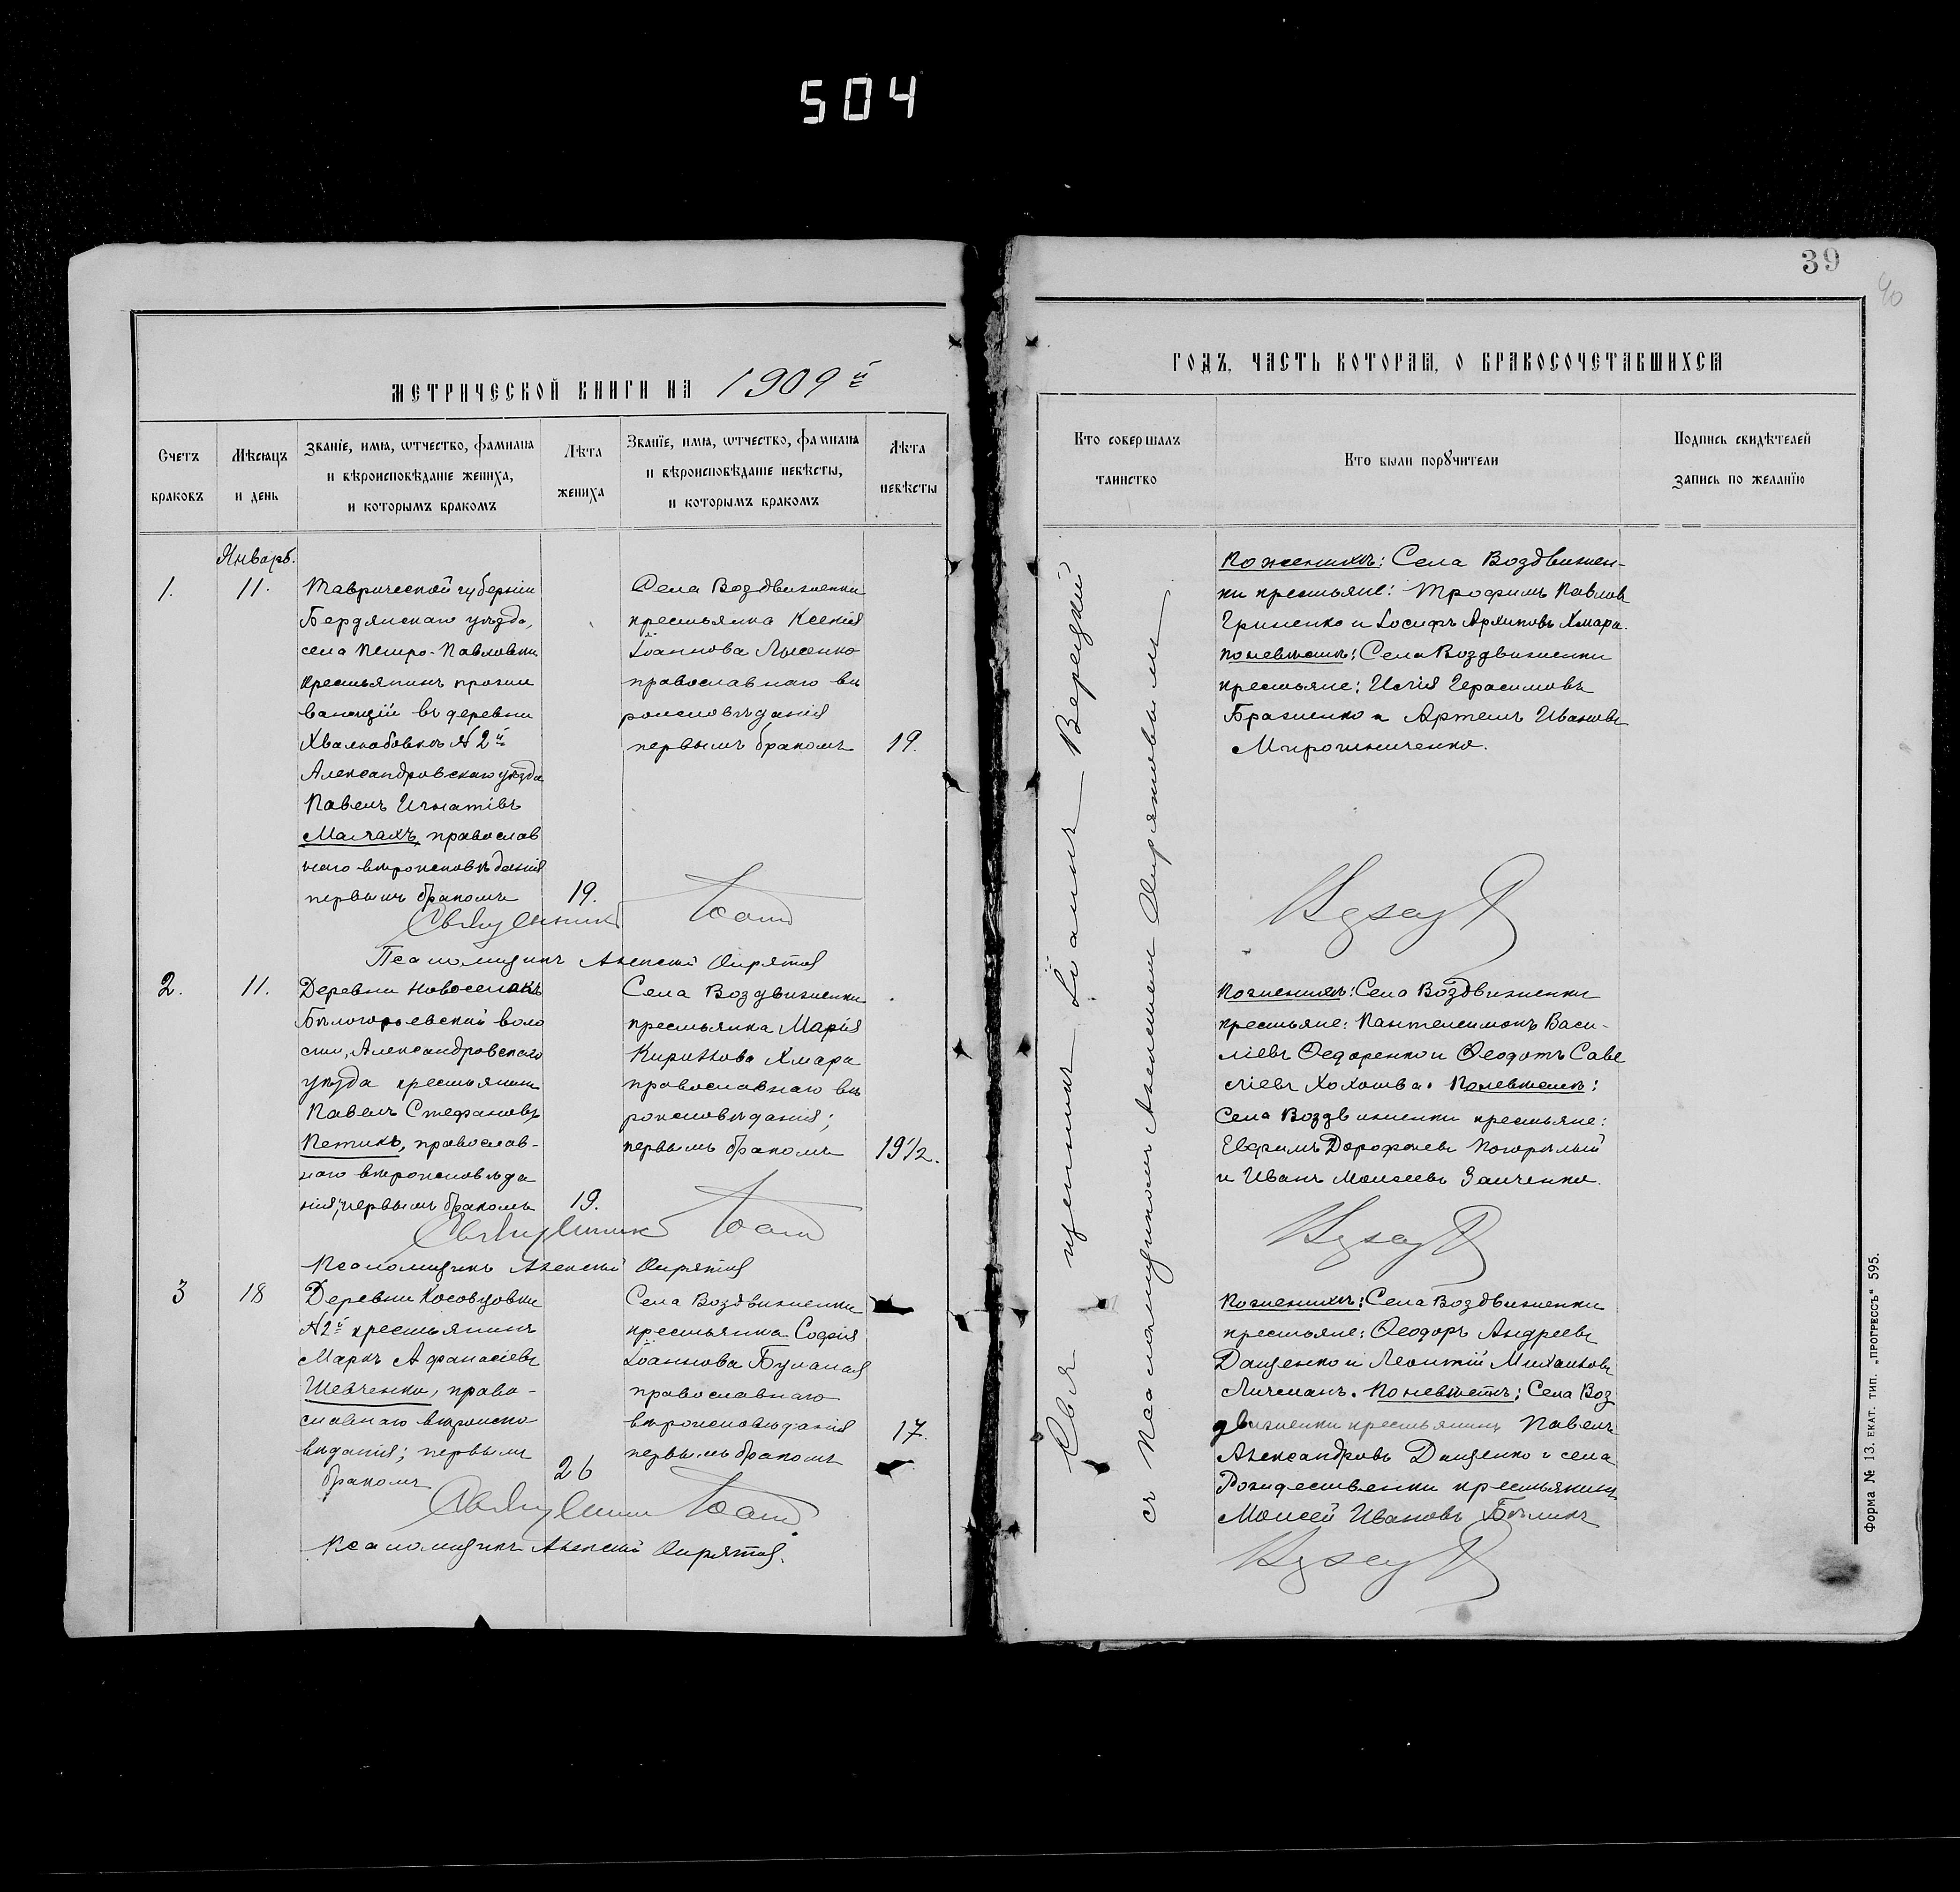 504
39
40
МЕТРИЧЕСКОЙ КНИГИ НА 1909й
Счетъ
браковъ
Мѣсяцъ
и день
Званіе, имя, ѿтчество, фамилия
и вѣроисповѣданіе жениха,
и которымъ бракомъ
Лѣта
жениха
Званїе, имя, ѿтчество, фамилия
и вѣроисповѣданіе невѣсты,
и которымъ бракомъ
Лѣта
невѣсты
Январь.
1.
11.
Таврической губерніи
Бердянскаго уѣзда,
села Петро-Павловки
крестьянинъ прожи
вающій въ деревни
Хвалюбовкѣ №2й
Александровскаго уѣзда
Павелъ Игнатіевъ
Малахъ, православ
наго вѣроисповѣданія
первымъ бракомъ
19.
Села Воздвиженки
крестьянка Ксенія
Іоаннова Лысенко
православнаго вѣ
роисповѣданія
первымъ бракомъ
19.
Священникъ Іоаннъ
Псаломщикъ Алексѣй
2.
11.
Деревни Новоселокъ
Бѣлогорьевской воло
сти, Александровскаго
уѣзда крестьянинъ
Павелъ Стефановъ
Петикъ, православ-
наго вѣроисповѣда
нія; первымъ бракомъ
19.
Села Воздвиженки
крестьянка Марія
Кириллова Хмара
православнаго вѣ
роисповѣданія;
первымъ бракомъ
19½.
Священникъ Іоаннъ
Псаломщикъ Алексѣй
3
18
Деревни Косовцовки
№2й крестьянинъ
Маркъ Афанасіевъ
Шевченко, право-
славнаго вѣроиспо
вѣданія; первымъ
бракомъ
26
Села Воздвиженки
крестьянка Софія
Іоаннова Буланая
православнаго
вѣроисповѣданія
первымъ бракомъ
17.
Священникъ Іоаннъ
Псаломщикъ Алексѣй
ГОДЪ, ЧАСТЬ ВТОРАЯ, О БРАКОСОЧЕТАВШИХСЯ
Кто совершалъ
таинство
Кто были порꙋчители
Подпись свидѣтелей
запись по желанїю
Священникъ Іоаннъ Верецкій
съ Псаломщикомъ Алексѣемъ
По женихѣ: Села Воздвижен-
ки крестьяне: Трофимъ Павловъ
Гриненко и Іосифъ Архиповъ Хмара.
по невѣстѣ: Села Воздвиженки
крестьяне: Илія Герасимовъ
Браженко и Артемъ Ивановъ
Мирошниченко.
По женихѣ: Села Воздвиженки
крестьяне: Пантелеимонъ Васи-
ліевъ Ѳедоренко и Ѳеодотъ Саве
ліевъ Хохотва. По невѣстѣ:
Села Воздвиженки крестьяне:
Евфимъ Дорофеевъ Погорѣлый
и Иванъ Моисеевъ Заиченко.
По женихѣ: Села Воздвиженки
крестьяне: Ѳеодоръ Андреевъ
Даценко и Леонтій Михаиловъ
Личманъ. По невѣстѣ: Села Воз
движенки крестьянинъ Павелъ
Александровъ Даценко и села
Рождественки крестьянинъ
Моисей Ивановъ Бѣликъ
Форма № 13. ЕКАТ. ТИП. „ПРОГРЕССЪ" 595.